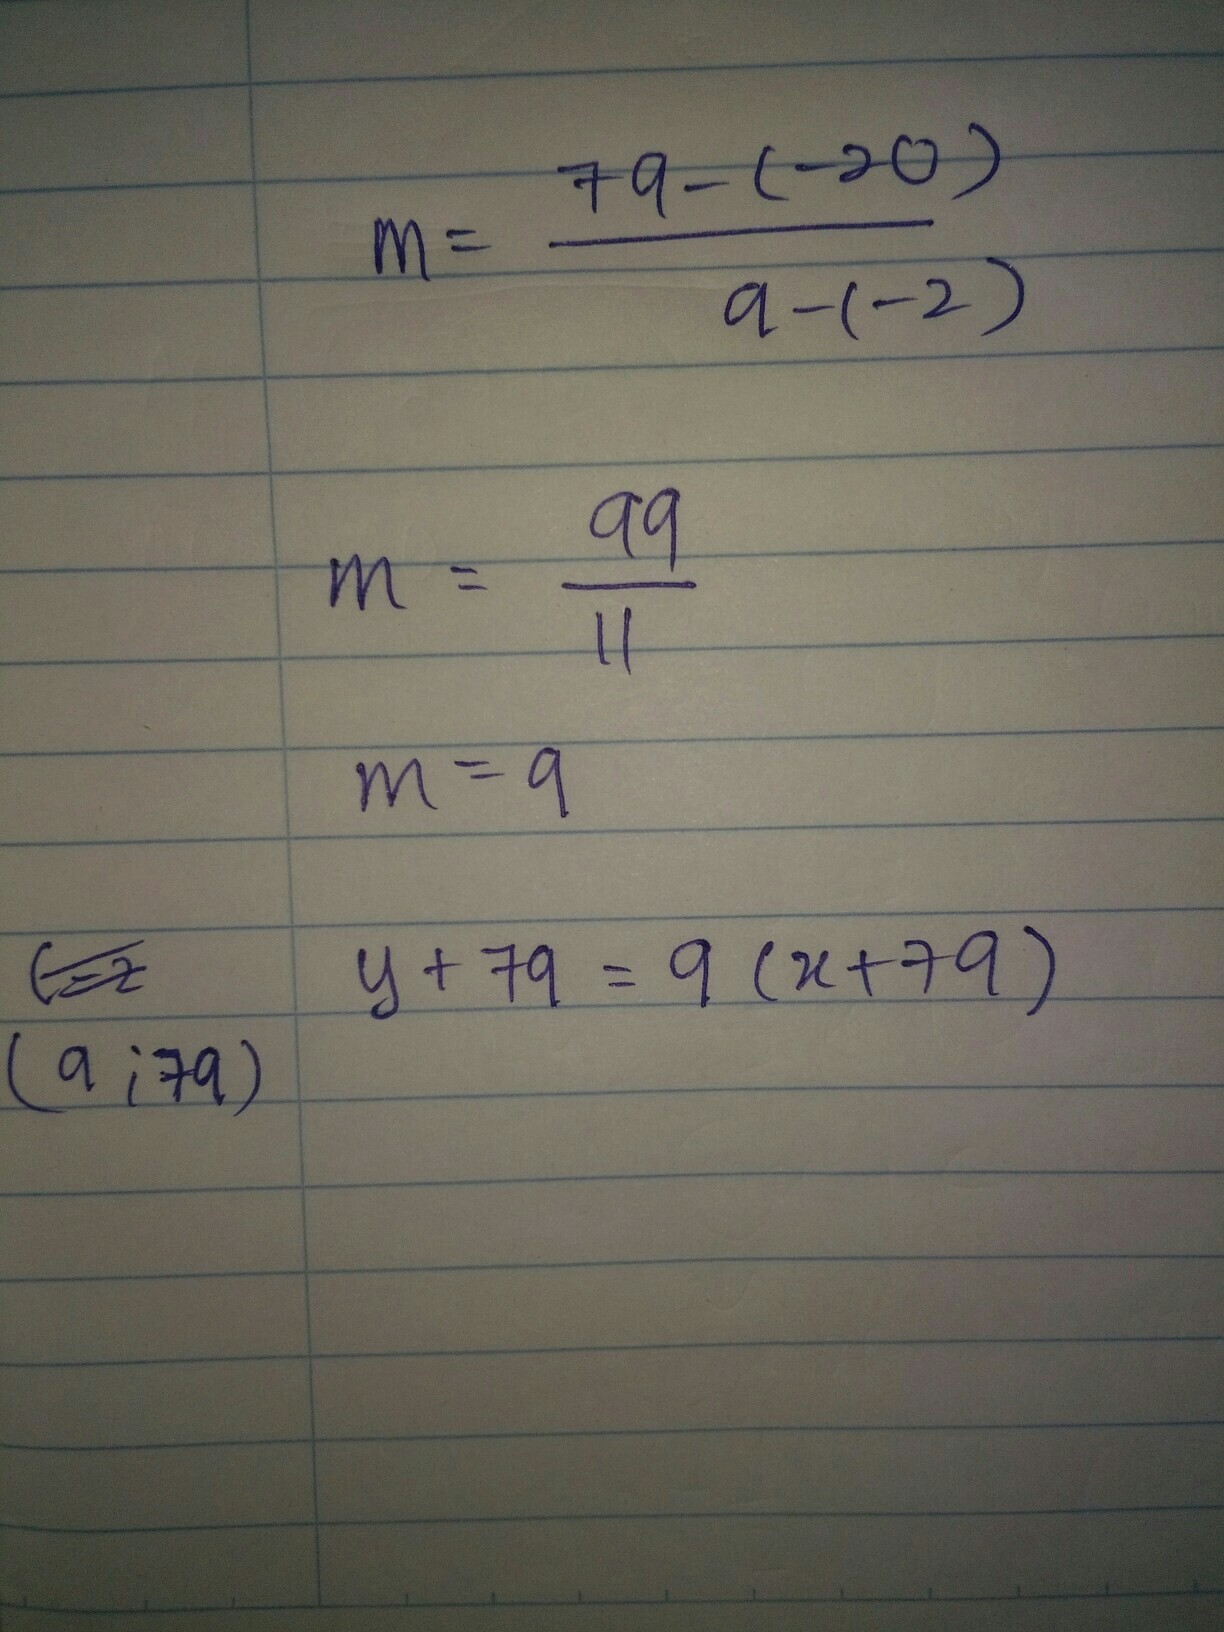 m = 79-(-20)
9-(-2)
m = 99
11
m = 9
y + 79 = 9 (x+79)
(9 ; 79)